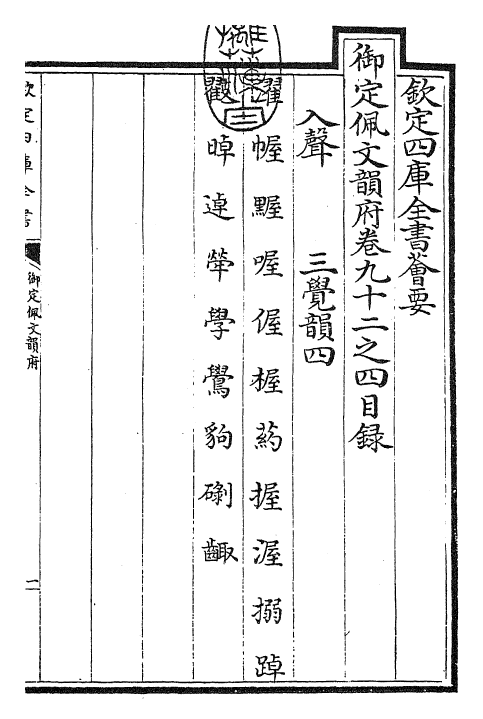 欽定四庫全書薈要
御定佩文韻府卷九十二之四目録
入聲　三覺韻四
幄 喔 偓 楃 葯 握 渥 搦 踔
晫 逴 犖 學 鷽 豿 齱
欽定四庫全書
御定佩文韻府
一